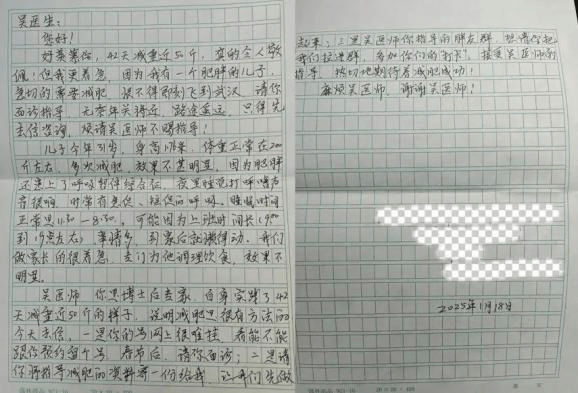 吴医生：
您好！
好羡慕你，42天减重近50斤，真的令人敬
佩！但我更着急，因为我有一个肥胖的儿子，
急切的需要减肥，恨不得即刻飞到武汉，请你
面诊指导，无奈年关将近，路途遥远，只得先
去信咨询，烦请吴医师不吝指导！
儿子今年31岁，身高1米，体重正常在200
斤左右，多次减肥，效果不甚明显，因为肥胖
还患上了呼吸暂停综合征，夜里睡觉打呼噜声
音很响，时常有急促、短促的呼吸，睡眠时间
正常是11:30-8:30。可能因为上班时间长(9:00
到19点左右)，事情多，到家后就懒得动。我们
做家长的很着急，专门为他调理饮食，效果不
明显。
吴医师，你是博士后专家，自身实践了42
天减重近50斤的样子，说明减肥是很有方法的
今天去信，一是你的号网上很难挂，看能不能
跟你预约留个号，春节后，请你面诊；二是请
你将指导减肥的资料寄一份给我，让我们先做
起来；三是吴医师你指导的胖友群，想请你把
我们拉进群，参加你们的"打卡"，接受吴医师的
指导，热切地期待着减肥成功！
麻烦吴医师，谢谢吴医师！
2025年1月18日